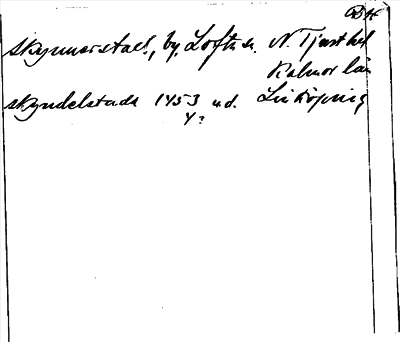 skynnerstad, by, Lofta sn. N. Tjust hd
Kalmar län
skyndelstada 1453 u.d. Linköping
4?